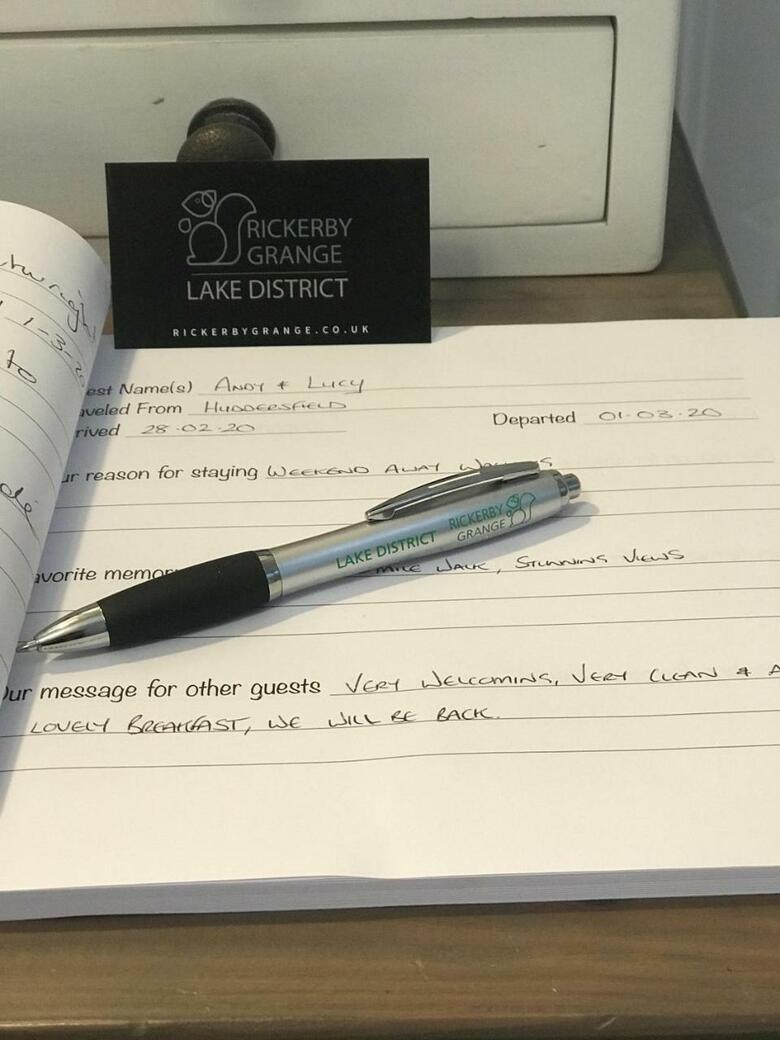 RICKERBY
GRANGE
LAKE DISTRICT
RICKERBYGRANGE.CO.UK
1-3-20
to
est Name(s) ANDY & LUCY
aveled From HUDDERSFIELD
rived 28.02.20
Departed 01.03.20
ur reason for staying WEEKEND AWAY
LAKE DISTRICT RICKERBY
GRANGE
avorite memor MILE WALK, STUNNING VIEWS
ur message for other guests VERY WELCOMING, VERY CLEAN & A
LOVELY BREAKFAST, WE WILL BE BACK.